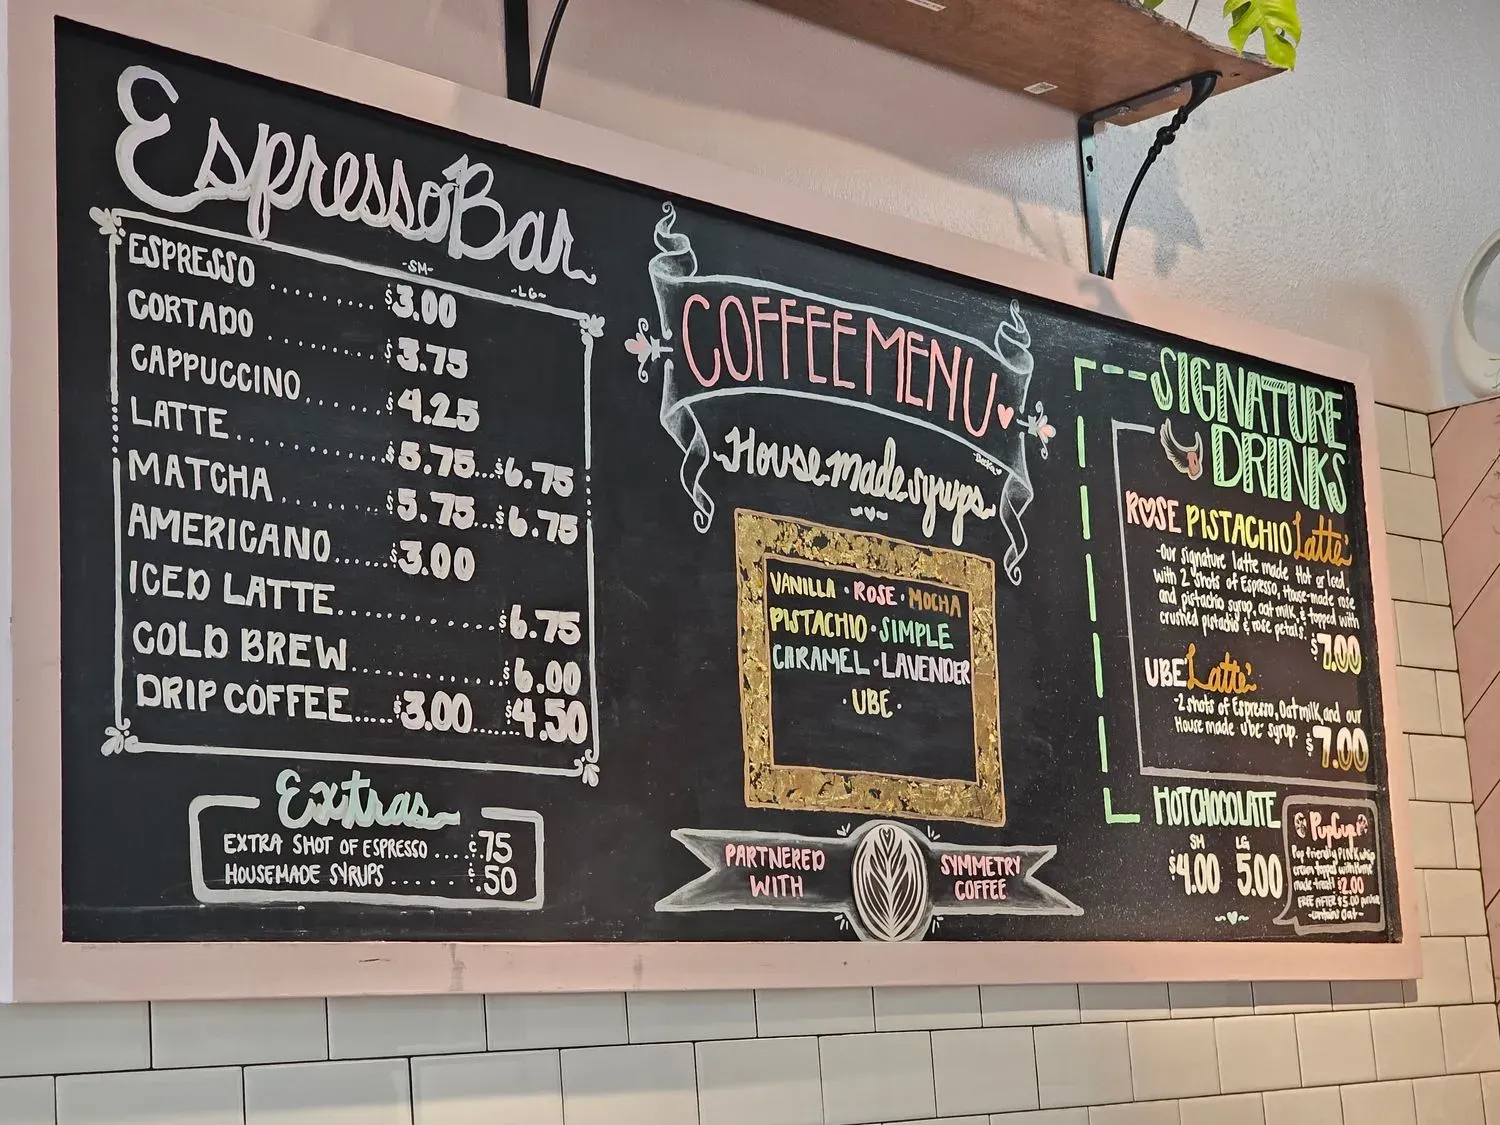 Espresso Bar
-SM-
-LG-
ESPRESSO ........ $3.00
CORTADO ....... $3.75
CAPPUCCINO ....... $4.25
LATTE.............. $5.75...$6.75
MATCHA ......... $5.75...$6.75
AMERICANO ...... $3.00
ICED LATTE............... $6.75
COLD BREW.............. $6.00
DRIP COFFEE.....$3.00......$4.50
Extras
EXTRA SHOT OF ESPRESSO .... .75
HOUSEMADE SYRUPS ..... .50
COFFEE MENU
House made syrups
VANILLA · ROSE · MOCHA
PISTACHIO · SIMPLE
CARAMEL · LAVENDER
· UBE ·
PARTNERED
WITH
SYMMETRY
COFFEE
SIGNATURE
DRINKS
ROSE PISTACHIO Latte
-our signature latte made Hot or Iced,
with 2 shots of Espresso, House-made rose
and pistachio syrup, oat milk, & topped with
crushed pistachio & rose petals.
$7.00
UBE Latte
-2 shots of Espresso, Oatmilk, and our
House made ube syrup.
$7.00
HOT CHOCOLATE
SM LG
$4.00 5.00
PupCup!
Pup friendly PINK whip
cream topped with home
made treat! $2.00
FREE AFTER $5.00
-contains oat-